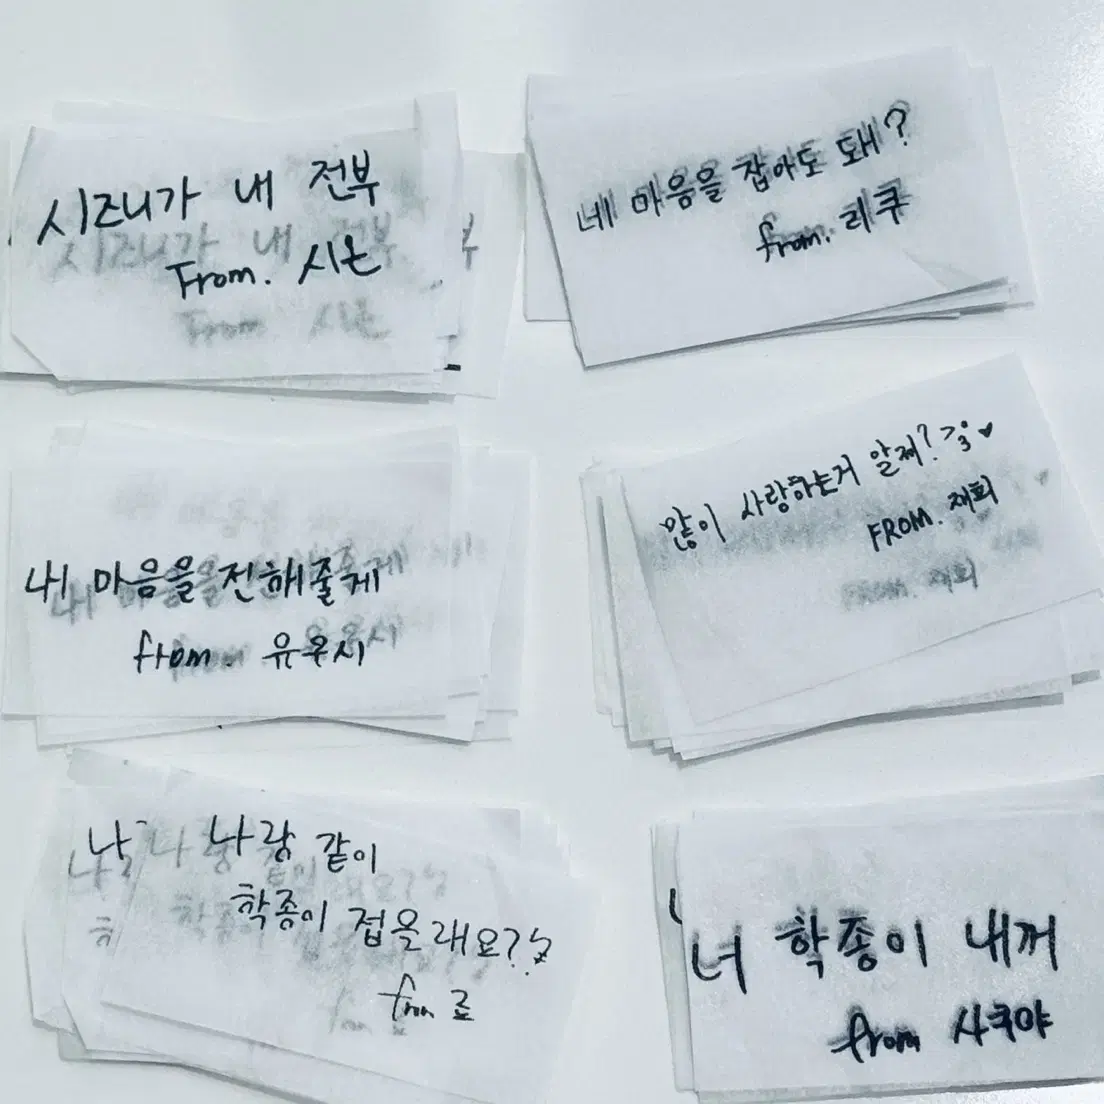 시즈니가 내 전부
From. 시온
네 마음을 잡아도 돼?
from. 리쿠
내 마음을 전해줄게
from. 유우시
많이 사랑하는거 알제?
FROM. 재희
나랑 같이
학종이 접을래요??
from 료
너 학종이 내꺼
from 사쿠야